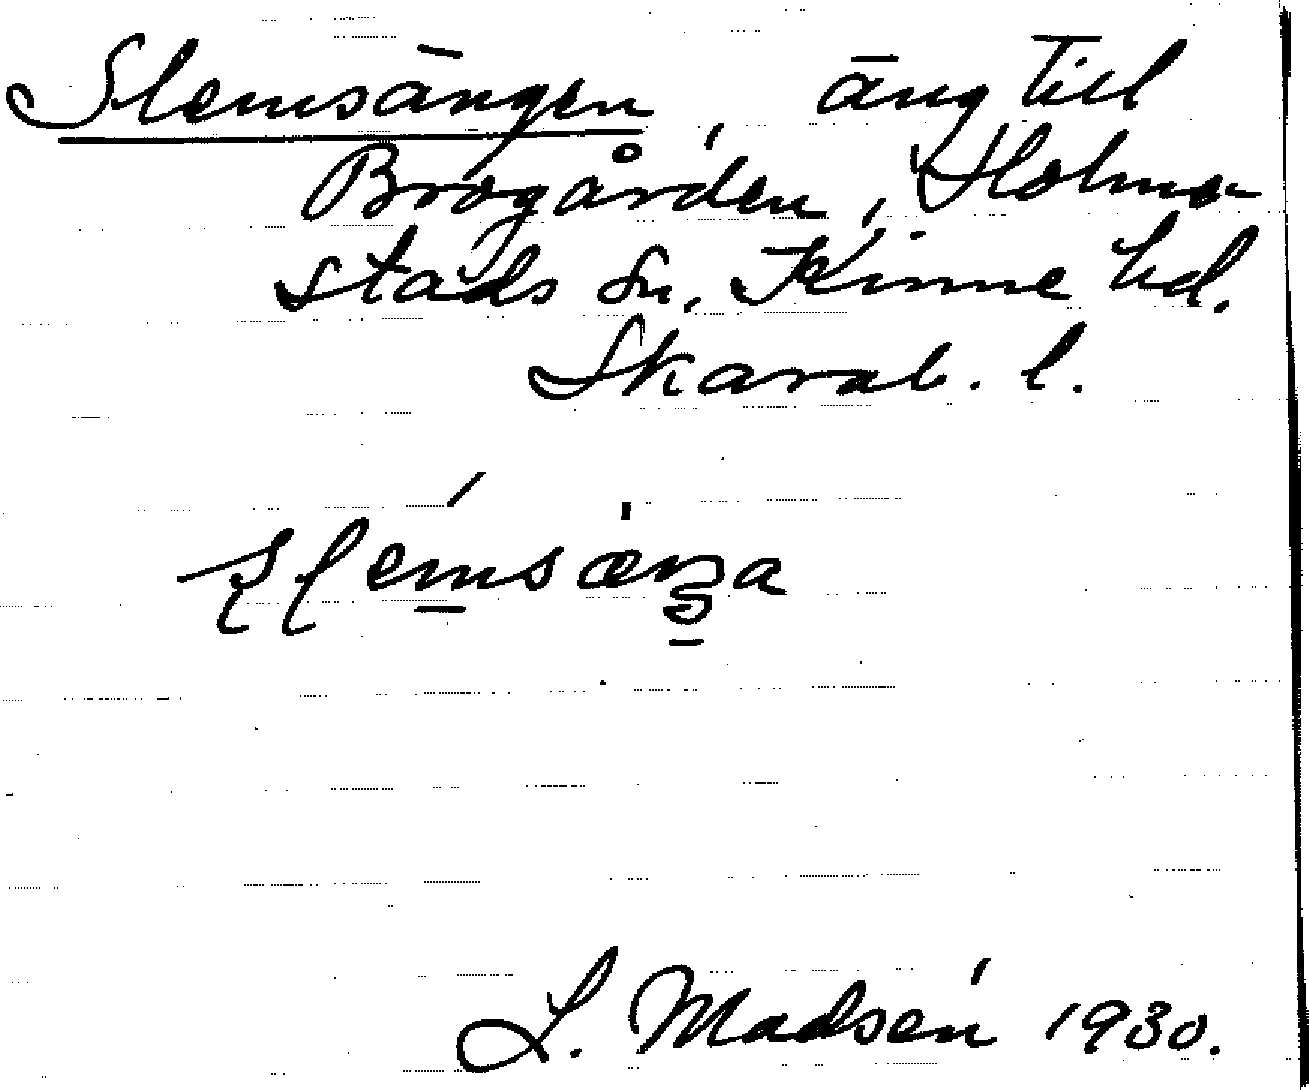 Slemsängen, äng till
Brogården, Holme-
stads sn. Kinne hd.
Skarab. l.
L. Madsén 1930.